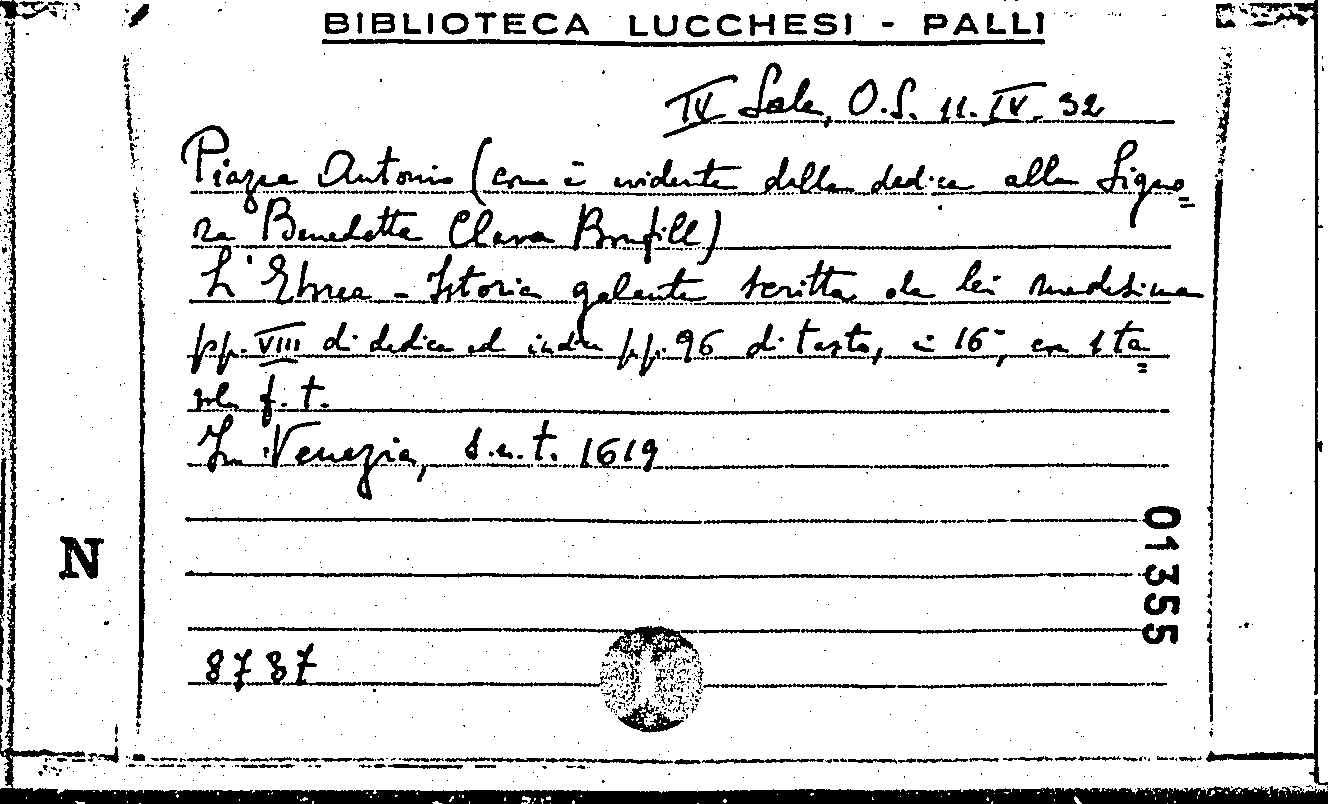 BIBLIOTECA LUCCHESI - PALLI
IV Sala, O.S. 11. IV. 32
Piazza Antonio (come è evidente dalla dedica alla Signo=
ra Benedetta Clara Bonfill)
L'Ebrea - Istoria galante scritta da lei medesima
pp. VIII di dedica ed indice pp. 96 di testo, in 16°, con 1 ta=
vola f. t.
In Venezia, s.n.t. 1619
N
01355
8787